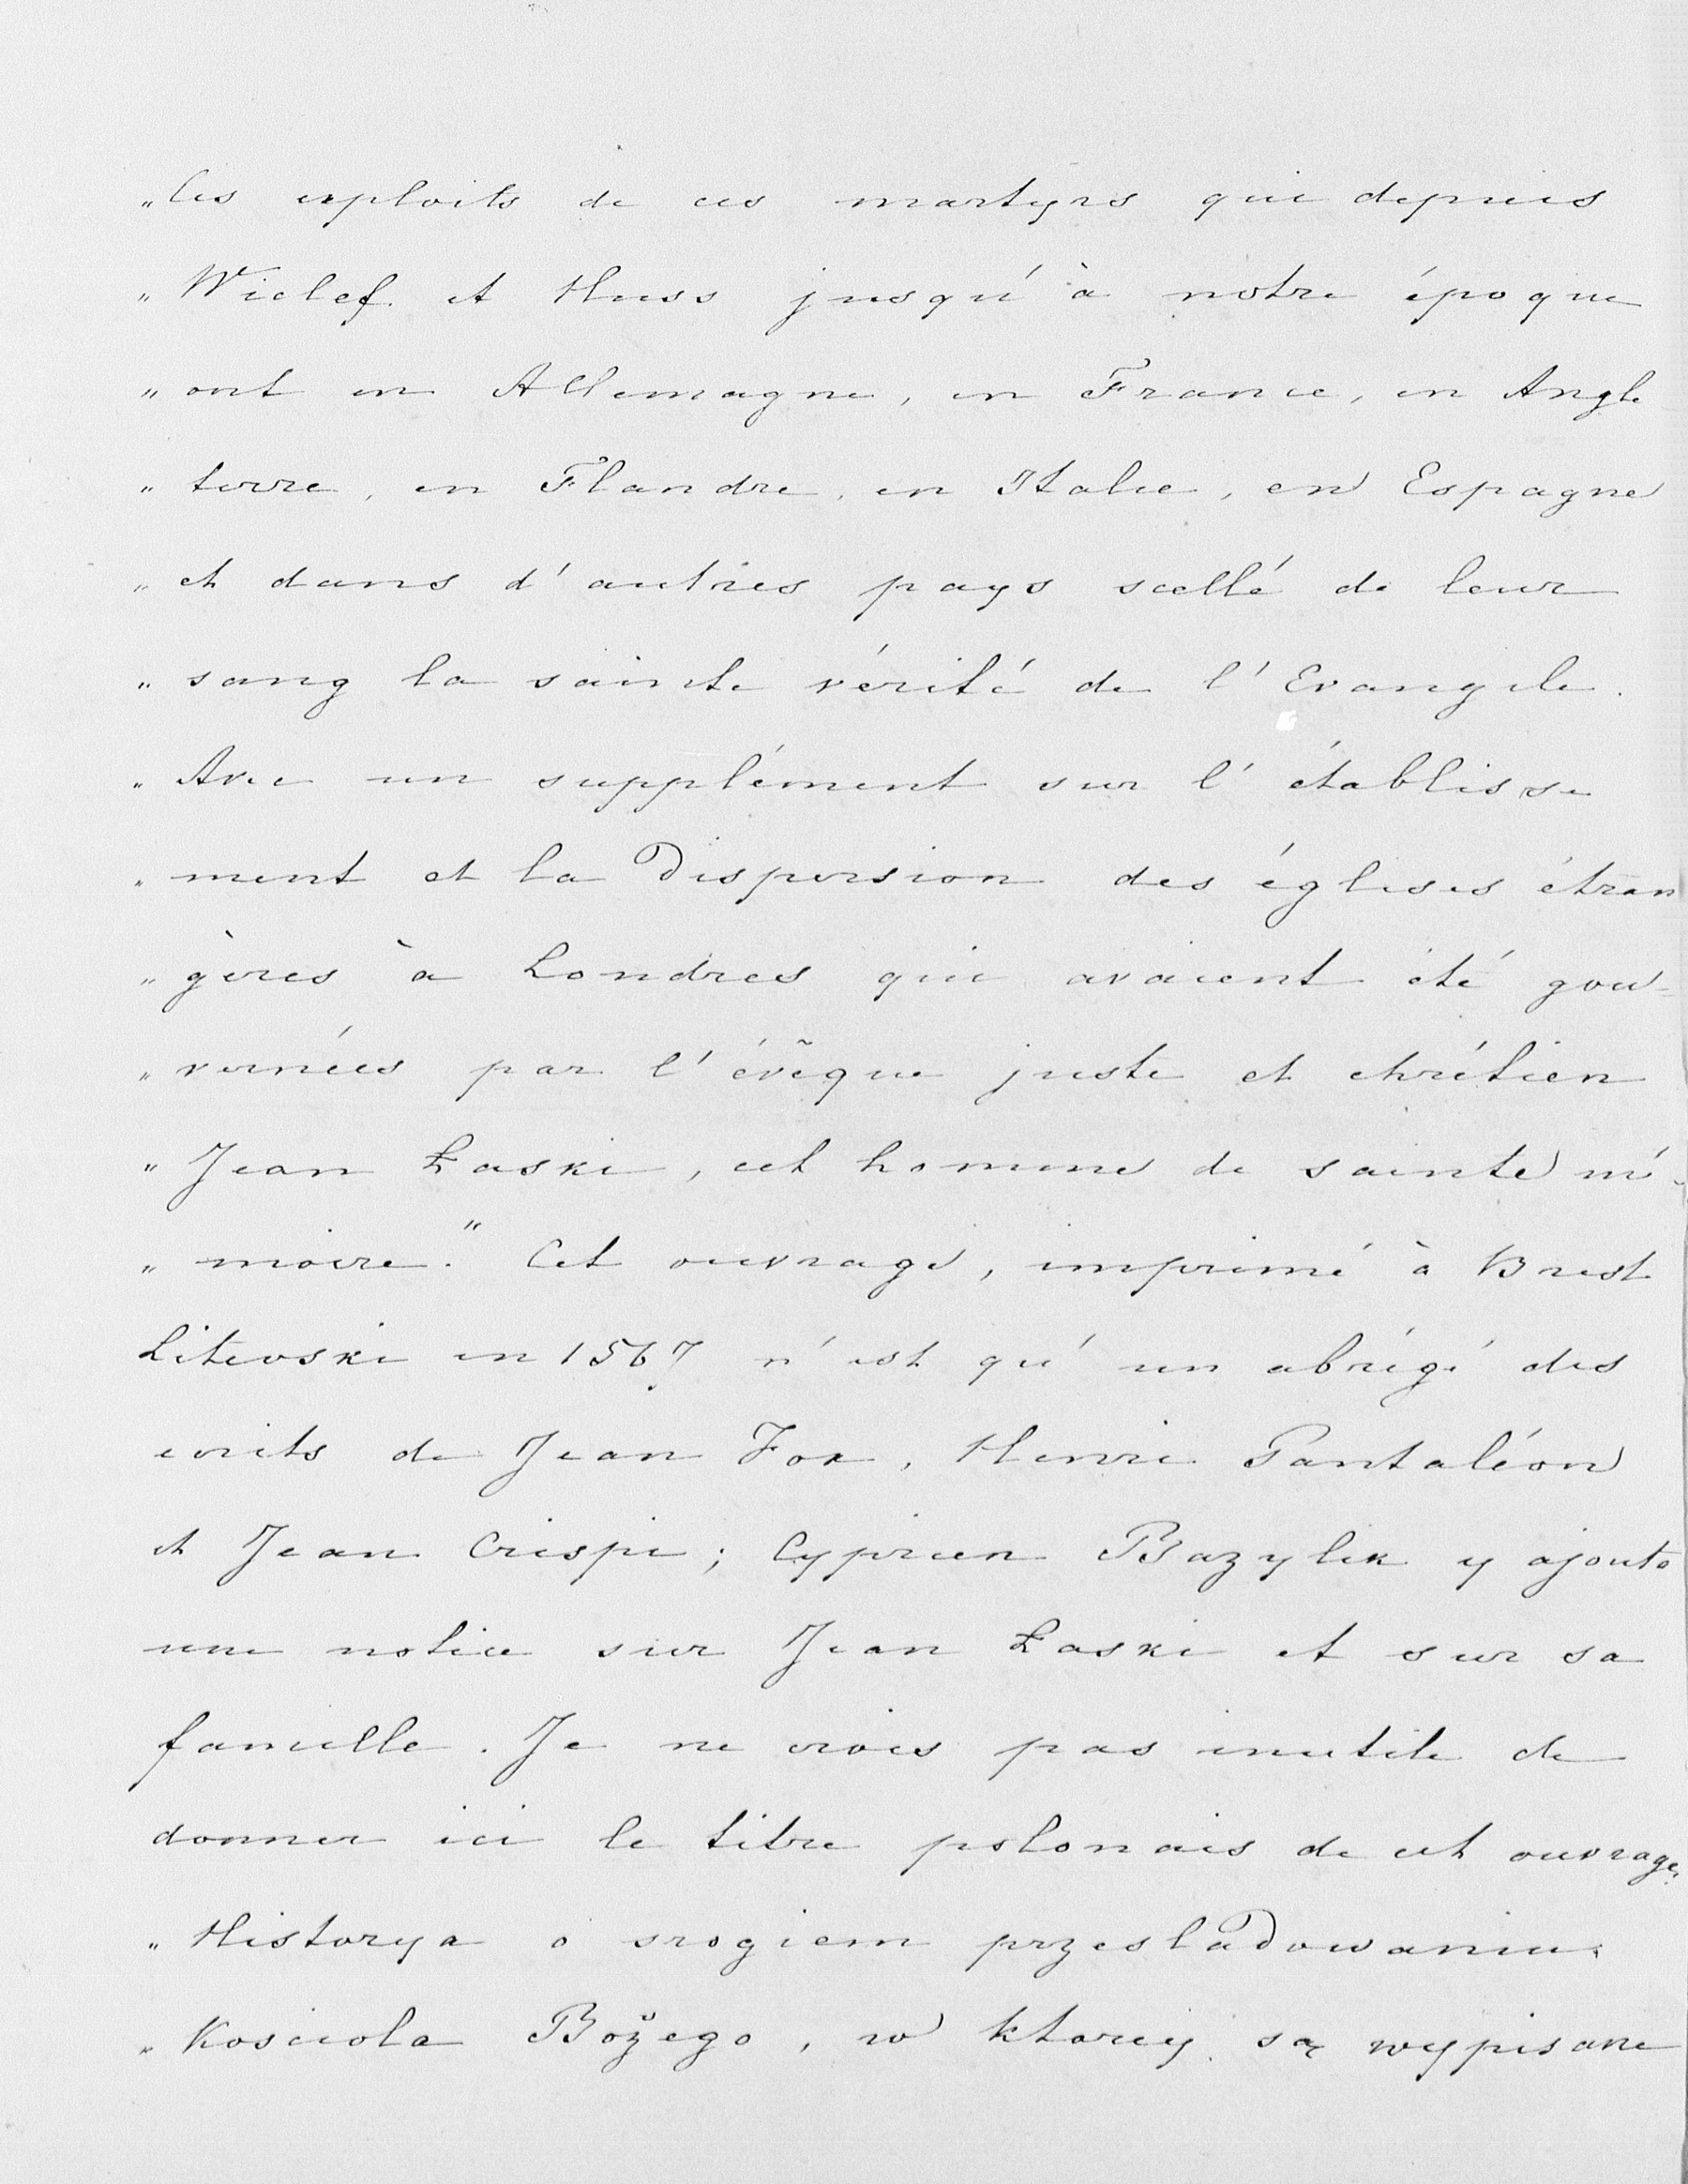 „les exploits de ces martyrs qui depuis
„ Wiclef. et Huss jusqu'à notre époque
„ ont en Allemagne, en France, en Angle
„ terre, en Flandre, en Italie, en Espagne
„ et dans d'autres pays scellé de leur
„ sang la sainte vérité de l'Evangile.
„ Avec un supplément sur l'établisse
„ ment et la Dispersion des églises étran
„ gères à Londres qui avaient été gou-
„ vernées par l'évêque juste et chrétien
„ Jean Łaski, cet homme de sainte mé-
„ moire." Cet ouvrage, imprimé à Brest
Litevski en 1567 n'est qu'un abrégé des
ecrits de Jean Fox, Henri Pantaléon
et Jean Crispi; Cyprien Bazylik y ajouta
une notice sur Jean Łaski et sur sa
famille. Je ne crois pas inutile de
donner ici le titre polonais de cet ouvrage.
„ Historya o srogiem przesladowaniu
„ Kosciola Bożego, w ktorej są wypisane